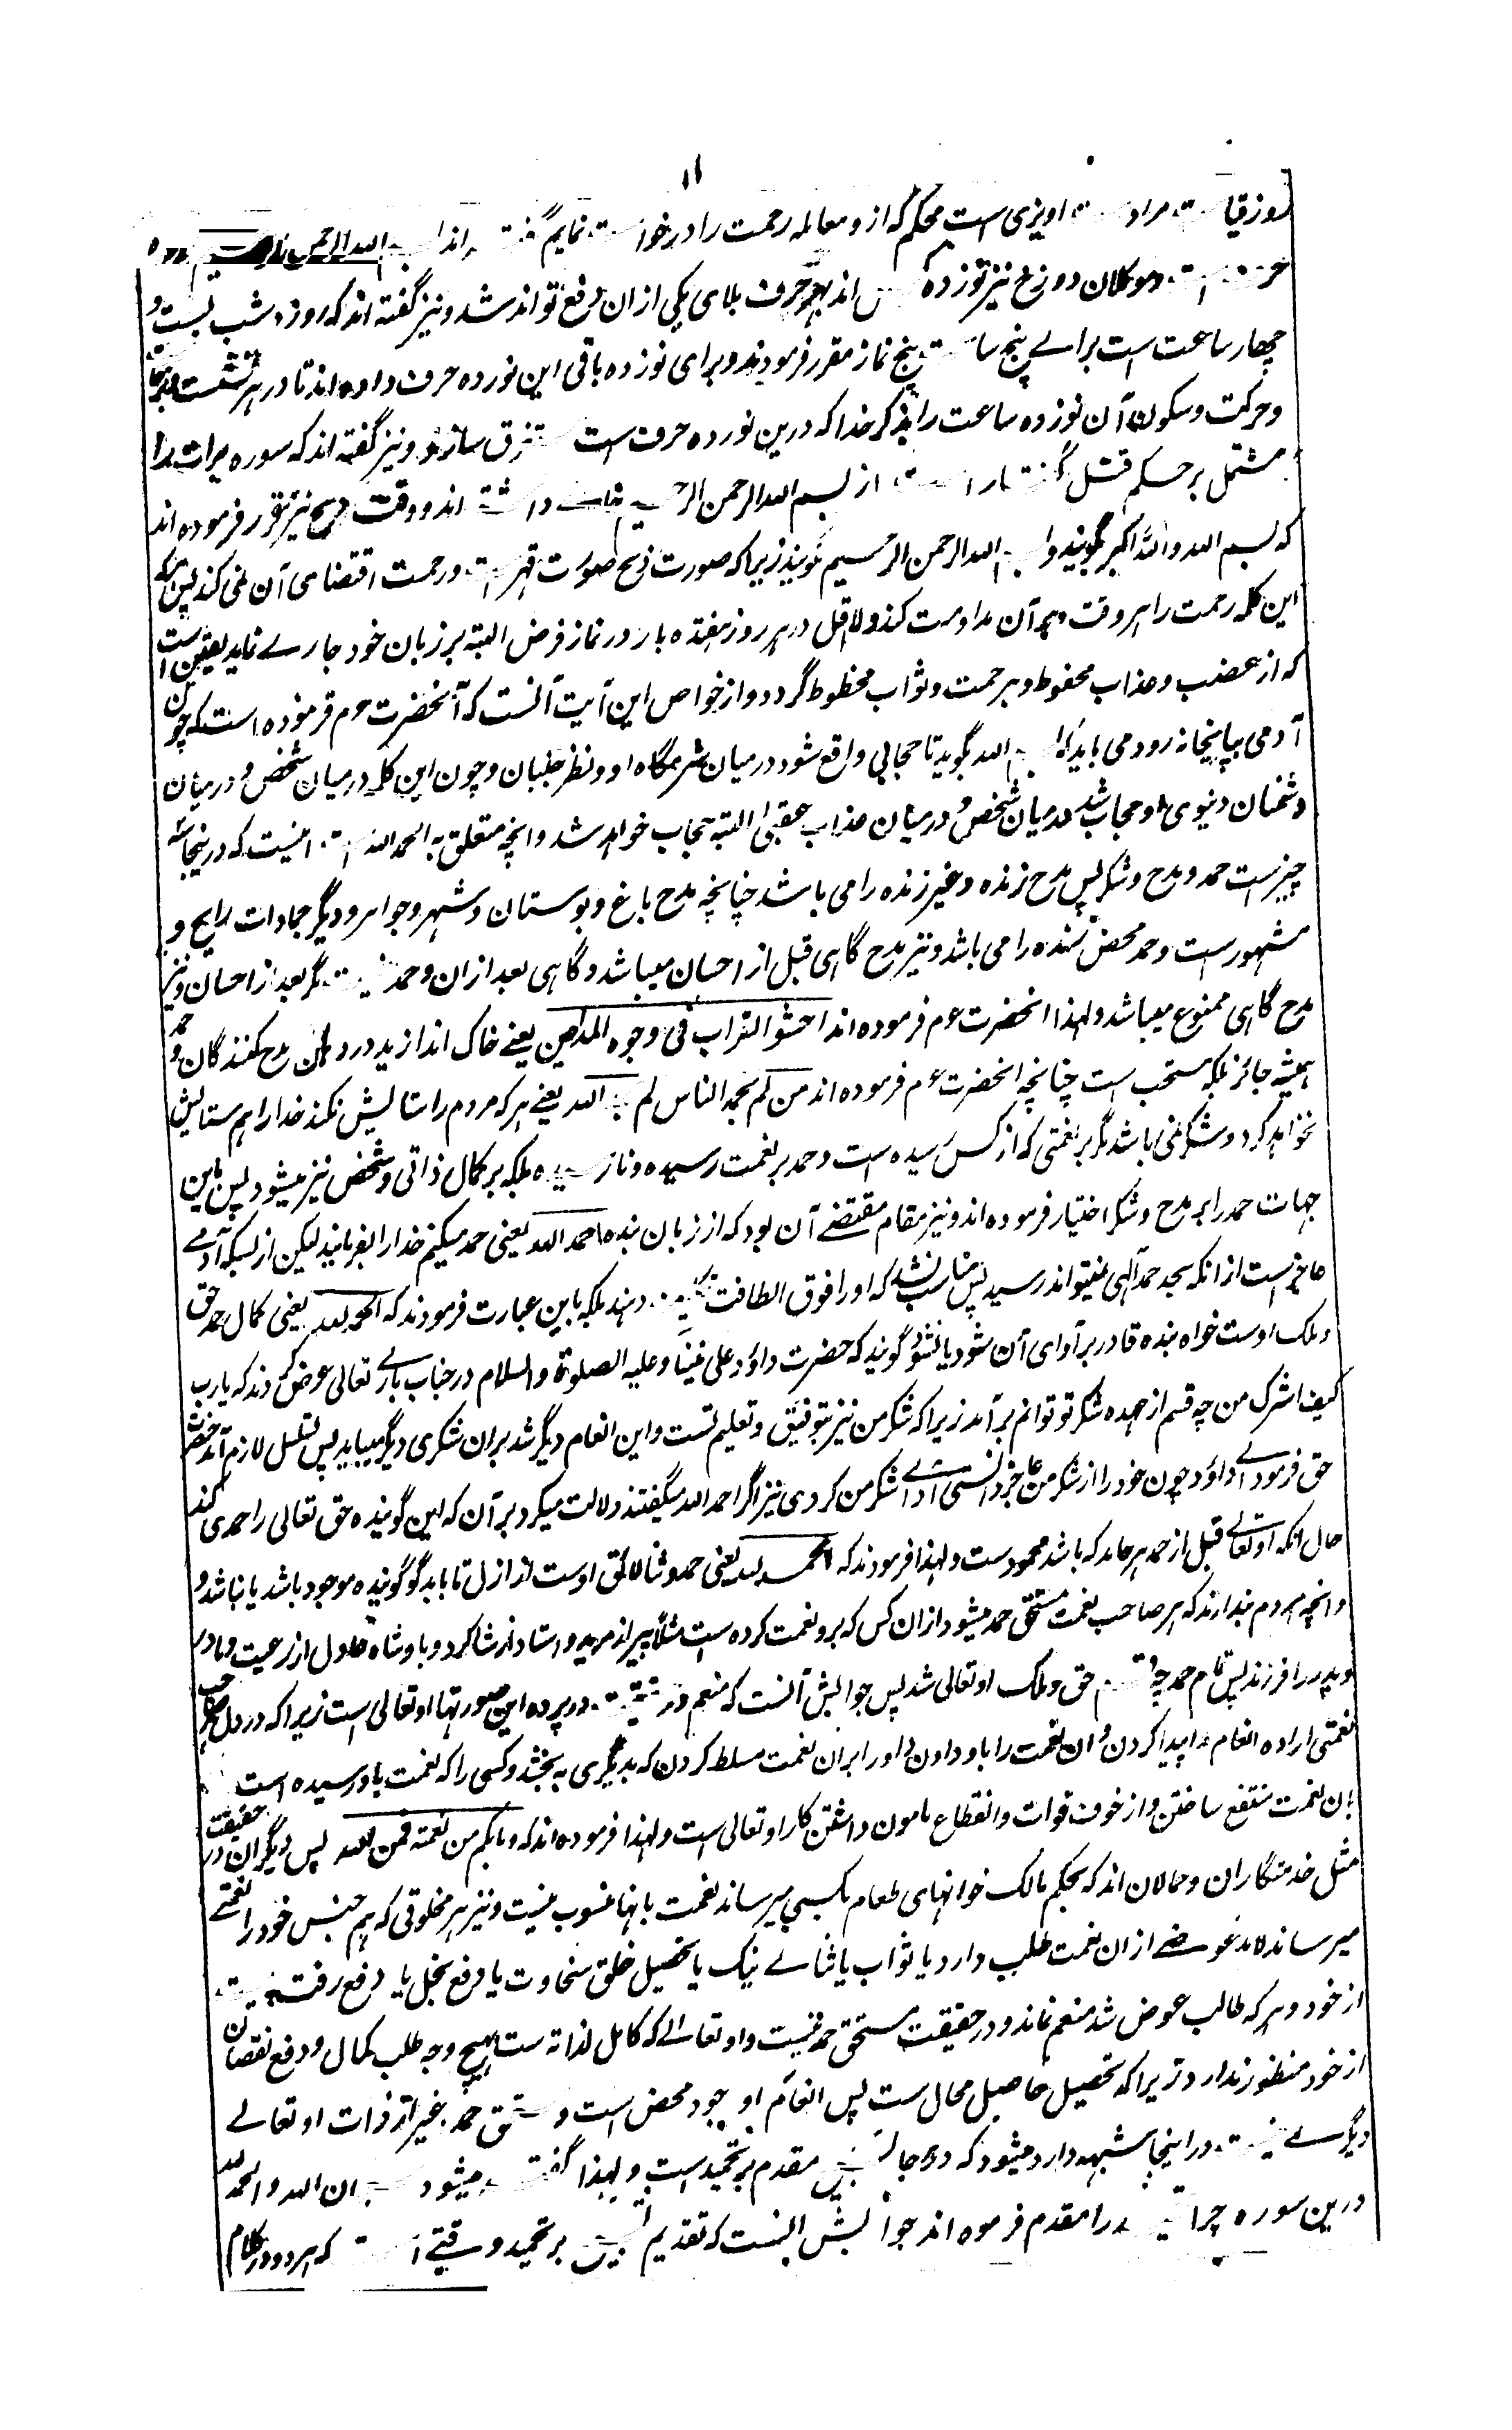 ۱۱
روز قیامت مرا دست اویزی است محکم که از و معامله رحمت را درخواست نمایم گفته اند الله الرحمن الرحیم نوزده
حرف است و موکلان دوزخ نیز نوزده اند بهر حرف بلای یکی ازان دفع تواند شد و نیز گفته اند که روز و شب بست و
چهار ساعت است برای پنج ساعت پنج نماز مقرر فرمودند و برای نوزده باقی این نوزده حرف داده اند تا در هر نشست
و حرکت و سکون آن نوزده ساعت را بذکر خدا که درین نوزده حرف است مستغرق سازند و نیز گفته اند که سوره برات را
مشتمل بر حکم قتل کفار است از بسم الله الرحمن الرحیم داشته اند و وقت ذبح نیز مقرر فرموده اند
که بسم الله والله اکبر بگویند و بسم الله الرحمن الرحیم نگویند زیرا که صورت ذبح صورت قهر است و رحمت اقتضای آن نمی کند پس هرکه
این کلمه رحمت را هر وقت بر آن مداومت کند و لا اقل در هر روز هفده بار در نماز فرض البته بر زبان خود جاری نماید یقین است
که از غضب و عذاب محفوظ و برحمت و ثواب محظوظ گردد و از خواص این آیت آنست که آنحضرت صلعم فرموده است که چون
آدمی بپایخانه رود می باید که بسم الله بگوید تا حجابی واقع شود درمیان شرمگاه او و نظر جنیان و چون این کلمه درمیان شخص و درمیان
دشمنان دنیوی او حجاب شد درمیان شخص و درمیان عذاب عقبی البته حجاب خواهد شد و انچه متعلق به الحمد لله است اینست که درینجا سه
چیز است حمد و مدح و شکر پس مدح زنده و غیر زنده را می باشد چنانچه مدح باغ و بوستان و شهر و جواهر و دیگر جمادات رایج و
مشهور است و حمد محض زنده را می باشد و نیز مدح گاهی قبل از احسان میباشد و گاهی بعد ازان و حمد نیست مگر بعد از احسان و نیز
مدح گاهی ممنوع میباشد و لهذا انحضرت صلعم فرموده اند احثوا التراب فی وجوه المداحین یعنی خاک اندازید در دهان مدح کنندگان و حمد
همیشه جائز بلکه مستحب است چنانچه انحضرت صلعم فرموده اند من لم یحمد الناس لم یحمد الله یعنی هر که مردم را ستایش نکند خدا را هم ستایش
نخواهد کرد و شکر نمی باشد مگر بر نعمتی که از کس رسیده است و حمد بر نعمت رسیده و نارسیده بلکه بر کمال ذاتی و شخص نیز میشود پس باین
جهات حمد را بر مدح و شکر اختیار فرموده اند و نیز مقام مقتضی آن بود که از زبان بنده احمد الله یعنی حمد میکنم خدا را بفرمایند لیکن ازبسکه آدمی
عاجز است از انکه بحد حمد الهی نمیتواند رسید پس مناسب نشد که او را فوق الطاقت تکلیف دهند بلکه باین عبارت فرمودند که الحمد لله یعنی کمال حمد حق
و ملک اوست خواه بنده قادر بر آدای آن شود یا نشود گویند که حضرت داؤد علی نبینا و علیه الصلوة والسلام در جناب باری تعالی عرض کردند که یارب
کیف اشکرک من چه قسم از عهده شکر تو توانم بر آمد زیرا که شکر من نیز بتوفیق و تعلیم تست و این انعام دیگر شد بران شکری دیگر میباید پس تسلسل لازم آمد حضرت
حق فرمود ای داؤد چون خود را از شکر من عاجز دانستی ادای شکر من کردی نیز اگر احمد الله میگفتند دلالت میکرد بر آن که این گوینده حق تعالی را حمدی کند
حال انکه او تعالی قبل از حمد هر حامد که باشد محمود است و لهذا فرمودند که الحمد لله یعنی حمد و ثنا لائق اوست از ازل تا باید گو گوینده موجود باشد یا نباشد و
و انچه مردم پندارند که هر صاحب نعمت مستحق حمد میشود ازان کس که برو نعمت کرده است مثلا پیر از مرید و استاد از شاگرد و بادشاه عادل از رعیت و مادر
و پدر را فرزند پس تمام حمد چه قسم حق و ملک او تعالی شد پس جوابش آنست که منعم در حقیقت در پرده این صورتها او تعالی است زیرا که در دل صاحب
نعمتی اراده انعام را پیدا کردن و ان نعمت را باو دادن و اورا بران نعمت مسلط کردن که بدیگری به بخشد و کسی را که نعمت باو رسیده است
بان نعمت منتفع ساختن و از خوف فوات و انقطاع مامون داشتن کار او تعالی است و لهذا فرموده اند که وما بکم من نعمة فمن الله پس دیگران در حقیقت
مثل خدمتگاران و حمالان اند که بحکم مالک خوانهای طعام بکسی میرساند نعمت بانها منسوب نیست و نیز هر مخلوقی که بهم جنس خود را نعمتی
میرساند لابد عوضی ازان نعمت طلب دارد یا ثواب یا ثنای نیک یا تحصیل خلق سخاوت یا دفع بخل یا دفع رقت جنسیت
از خود و هر که طالب عوض شد منعم نماند و در حقیقت مستحق حمد نیست و او تعالی که کامل لذاته است بهیچ وجه طلب کمال و دفع نقصان
از خود منظور ندارد زیرا که تحصیل حاصل محال ست پس انعام او جود محض است و مستحق حمد بغیر از ذات او تعالی
دیگری نیست در اینجا شبهه وارد میشود که هر جا تسبیح مقدم بر تحمید است و لهذا گفته میشود سبحان الله والحمد لله
درین سوره چرا تحمید را مقدم فرموده اند جوابش اینست که تقدیم تسبیح بر تحمید وقتی است که هر دو در کلام